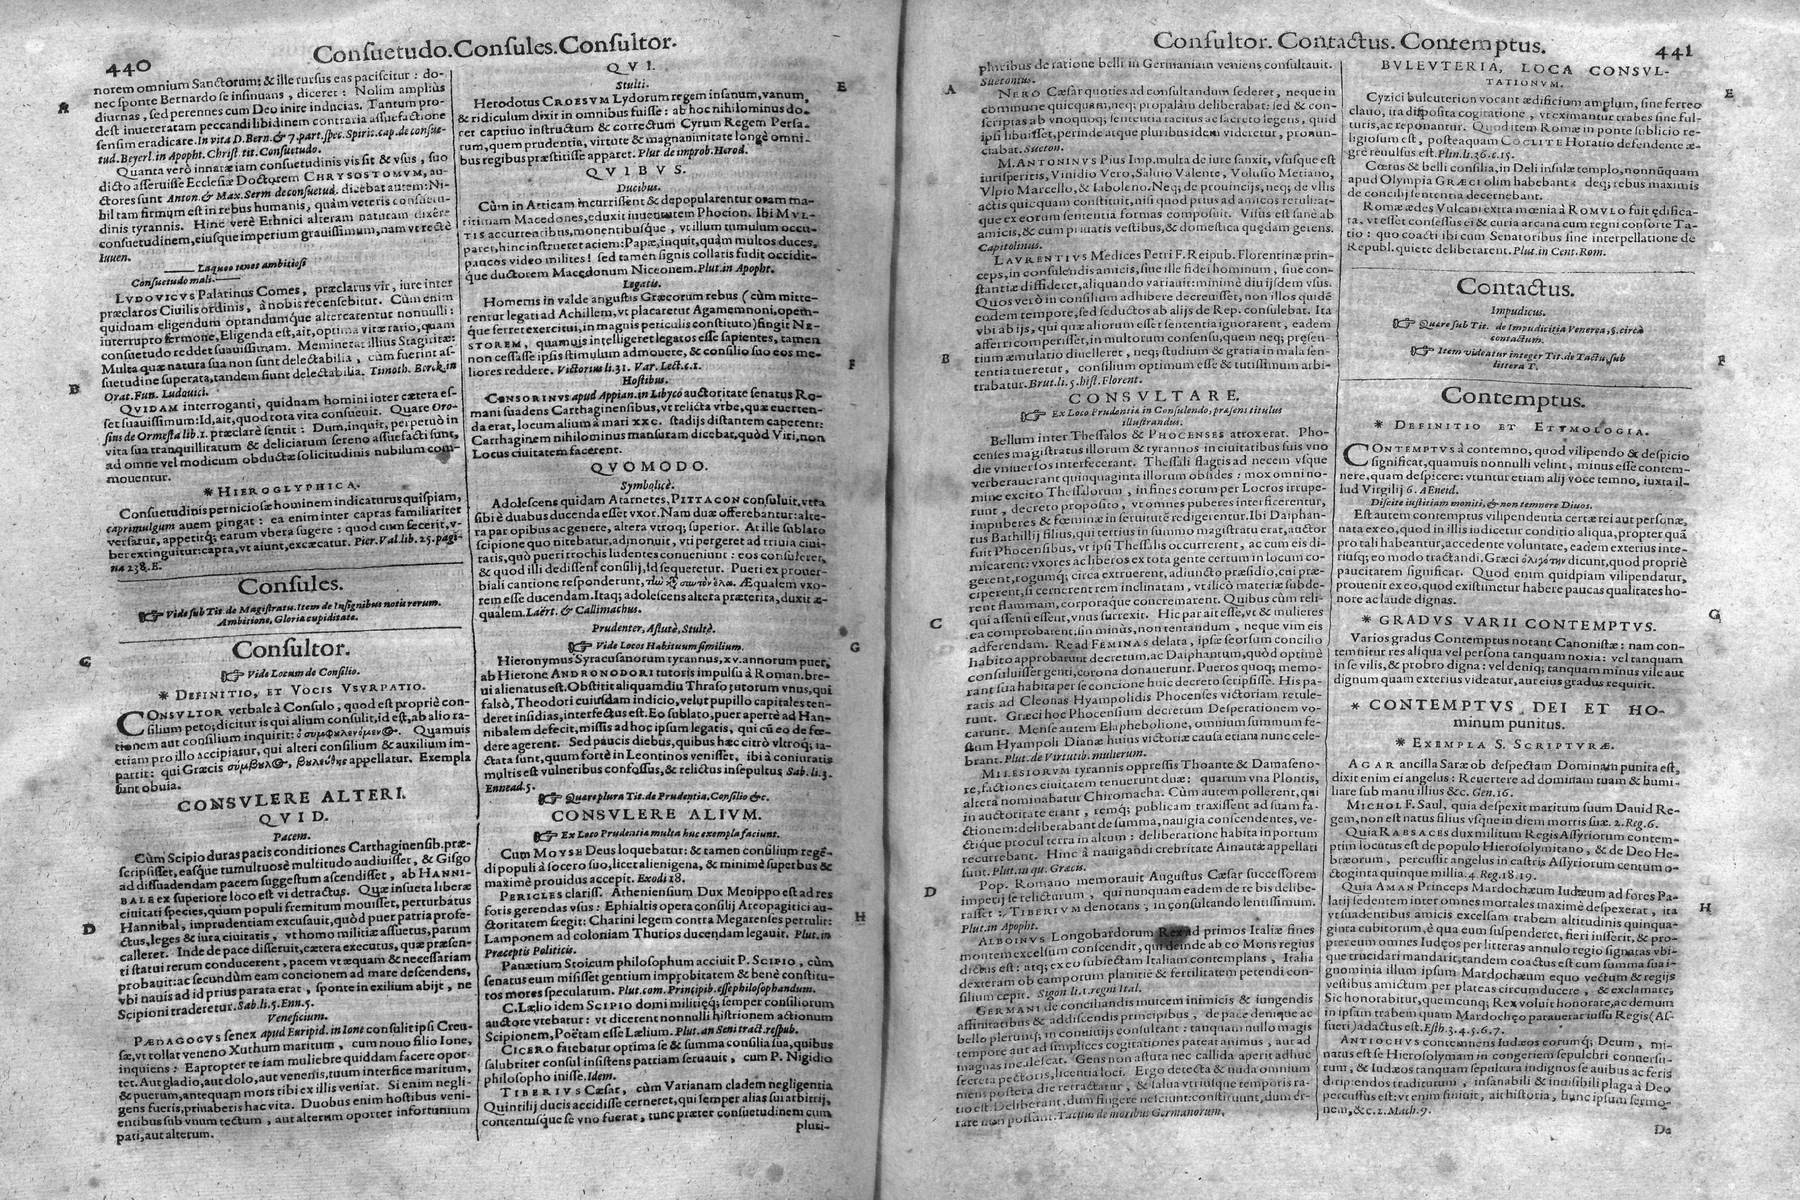 440
Consuetudo. Consules. Consultor.
norem omnium Sanctorum: & ille rursus eas paciscitur: do-
nec sponte Bernardo se insinuans, diceret: Nolim amplius
diurnas, sed perennes cum Deo inire inducias. Tantum pro-
dest inueteratam peccandi libidinem contraria assuefactione
sensim eradicare. In vita D. Bern. & 7. part. spec. Spirit. cap. de consue-
tud. Beyerl. in Apopht. Christ. tit. Consuetudo.
Quanta verò innatæ iam consuetudinis vis sit & vsus, suo
dicto asseruisse Ecclesiæ Doctorem CHRYSOSTOMVM, au-
ctores sunt Anton. & Max. Serm de consuetud. dicebat autem: Ni-
hil tam firmum est in rebus humanis, quàm veteris consuetu-
dinis tyrannis. Hinc verè Ethnici alteram naturam dixêre
consuetudinem, eiusque imperium grauissimum, nam vt rectè
Iuuen.
Laqueo tenet ambitiosi
Consuetudo mali:
LVDOVICVS Palatinus Comes, præclarus vir, iure inter
præclaros Ciuilis ordinis, à nobis recensebitur. Cùm enim
quidnam eligendum optandumque altercarentur nonnulli:
interrupto sermone, Eligenda est, ait, optima vitæ ratio, quam
consuetudo reddet suauissimam. Meminerat illius Stagiritæ:
Multa quæ natura sua non sunt delectabilia, cùm fuerint as-
suetudine superata, tandem fiunt delectabilia. Timoth. Berck. in
Orat. Fun. Ludouici.
QVIDAM interroganti, quidnam homini inter cætera es-
set suauissimum: Id, ait, quod tota vita consueuit. Quare Oro-
sius de Ormesta lib. 1. præclarè sentit: Dum, inquit, perpetuò in
vita sua tranquillitatum & deliciarum sereno assuefacti sunt,
ad omne vel modicum obductæ solicitudinis nubilum com-
mouentur.
* HIEROGLYPHICA.
Consuetudinis perniciosæ hominem indicaturus quispiam,
caprimulgum auem pingat: ea enim inter capras familiariter
versatur, appetitq; earum vbera sugere: quod cum fecerit, v-
ber extinguitur: capra, vt aiunt, excæcatur. Pier. Val. lib. 25. pagi-
na 238. E.
Consules.
☞ Vide sub Tit. de Magistratu. Item de Insignibus notis rerum.
Ambitione, Gloriæ cupiditate.
Consultor.
☞ Vide Locum de Consilio.
* DEFINITIO, ET VOCIS VSVRPATIO.
CONSVLTOR verbale à Consulo, quod est propriè con-
silium peto; dicitur is qui alium consulit, id est, ab alio ra-
tionem aut consilium inquirit: ὁ συμβουλευόμενος. Quamuis
etiam pro illo accipiatur, qui alteri consilium & auxilium im-
partit: qui Græcis σύμβουλος, βουλευτὴς appellatur. Exempla
sunt obuia.
CONSVLERE ALTERI.
QVID.
Pacem.
Cùm Scipio duras pacis conditiones Carthaginensib. præ-
scripsisset, easque tumultuosè multitudo audiuisset, & Gisgo
ad dissuadendam pacem suggestum ascendisset, ab HANNI-
BALE ex superiore loco est vi detractus. Quæ insueta liberæ
ciuitati species, quum populi fremitum mouisset, perturbatus
Hannibal, imprudentiam excusauit, quòd puer patria profe-
ctus, leges & iura ciuitatis, vt homo militiæ assuetus, parum
calleret. Inde de pace disseruit, cætera executus, quæ præsen-
ti statui rerum conducerent, pacem vt æquam & necessariam
probauit: ac secundùm eam concionem ad mare descendens,
vbi nauis ad id prius parata erat, sponte in exilium abijt, ne
Scipioni traderetur. Sab. li. 5. Enn. 5.
Veneficium.
PÆDAGOGVS senex apud Euripid. in Ione consulit ipsi Creu-
sæ, vt tollat veneno Xuthum maritum, cum nouo filio Ione,
inquiens: Eapropter te iam muliebre quiddam facere opor-
tet. Aut gladio, aut dolo, aut venenis, tuum interfice maritum,
& puerum, antequam mors tibi ex illis veniat. Si enim negli-
gens fueris, priuaberis hac vita. Duobus enim hostibus veni-
entibus sub vnum tectum, aut alterum oportet infortunium
pati, aut alterum.
QVI.
Stulti.
Herodotus CROESVM Lydorum regem insanum, vanum,
& ridiculum dixit in omnibus fuisse: ab hoc nihilominus do-
ret captiuo instructum & correctum Cyrum Regem Persa-
rum, quem prudentia, virtute & magnanimitate longè omni-
bus regibus præstitisse apparet. Plut de improb. Herod.
QVIBVS.
Ducibus.
Cùm in Atticam incurrissent & depopularentur oram ma-
ritimam Macedones, eduxit iuuentutem Phocion. Ibi MVL-
TIS accurrentibus, monentibusque, vt illum tumulum occu-
paret, hinc instrueret aciem: Papæ, inquit, quàm multos duces,
paucos video milites! sed tamen signis collatis fudit occidit-
que ductorem Macedonum Niceonem. Plut. in Apopht.
Legatis.
Homerus in valde angustis Græcorum rebus (cùm mitte-
rentur legati ad Achillem, vt placaretur Agamemnoni, opem-
que ferret exercitui, in magnis periculis constituto) fingit NE-
STOREM, quamuis intelligeret legatos esse sapientes, tamen
non cessasse ipsis stimulum admouere, & consilio suo eos me-
liores reddere. Victorius li. 31. Var. Lect. c. 1.
Hostibus.
CENSORINVS apud Appian. in Libyco auctoritate senatus Ro-
mani suadens Carthaginensibus, vt relicta vrbe, quæ euerten-
da erat, locum alium à mari XXC. stadijs distantem caperent:
Carthaginem nihilominus mansuram dicebat, quòd Viri, non
Locus ciuitatem facerent.
QVOMODO.
Symbolicè.
Adolescens quidam Atarnetes, PITTACON consuluit, vtra
sibi è duabus ducenda esset vxor. Nam duæ offerebantur: alte-
ra par opibus ac genere, altera vtroq; superior. At ille sublato
scipione quo nitebatur, admonuit, vti pergeret ad triuia ciui-
tatis, quò pueri trochis ludentes conueniunt: eos consuleret,
& quod illi dedissent consilij, id sequeretur. Pueri ex prouer-
biali cantione responderunt, τὴν κατὰ σαυτὸν ἔλα. Æqualem vxo-
rem esse ducendam. Itaq; adolescens altera præterita, duxit æ-
qualem. Laërt. & Callimachus.
Prudenter, Astutè, Stultè.
☞ Vide Locos Habituum similium.
Hieronymus Syracusanorum tyrannus, xv. annorum puer,
ab Hierone ANDRONODORI tutoris impulsu à Roman. bre-
ui alienatus est. Obstitit aliquamdiu Thraso tutorum vnus, qui
falsò, Theodori cuiusdam indicio, velut pupillo capitales ten-
deret insidias, interfectus est. Eo sublato, puer apertè ad Han-
nibalem defecit, missis ad hoc ipsum legatis, qui cū eo de foe-
dere agerent. Sed paucis diebus, quibus hæc citrò vltroq; ia-
ctata sunt, quum fortè in Leontinos venisset, ibi à coniuratis
multis est vulneribus confossus, & relictus insepultus Sab. li. 3.
Ennead. 5.
☞ Quære plura Tit. de Prudentia, Consilio &c.
CONSVLERE ALIVM.
☞ Ex Loco Prudentia multa huc exempla faciunt.
Cum MOYSE Deus loquebatur: & tamen consilium regē-
di populi à socero suo, licet alienigena, & minimè superbus &
maximè prouidus accepit. Exodi 18.
PERICLES clariss. Atheniensium Dux Menippo est ad res
foris gerendas vsus: Ephialtis opera consilij Areopagitici au-
ctoritatem fregit: Charini legem contra Megarenses pertulit:
Lamponem ad coloniam Thurios ducendam legauit. Plut. in
Præceptis Politicis.
Panætium Stoicum philosophum acciuit P. SCIPIO, cùm
senatus eum misisset gentium improbitatem & benè constitu-
tos mores speculatum. Plut. com. Principib. esse philosophandum.
C. Lælio idem SCIPIO domi militięq; semper consiliorum
auctore vtebatur: vt dicerent nonnulli histrionem actionum
Scipionem, Poëtam esse Lælium. Plut. an Seni tract. respub.
CICERO fatebatur optima se & summa consilia sua, quibus
salubriter consul insistens patriam seruauit, cum P. Nigidio
philosopho inisse. Idem.
TIBERIVS Cæsar, cùm Varianam cladem negligentia
Quintilij ducis accidisse cerneret, qui semper alias sui arbitrij,
contentusque se vno fuerat, tunc præter consuetudinem cum
pluri-
Consultor. Contactus. Contemptus.
441
pluribus de ratione belli in Germaniam veniens consultauit.
Suetonius.
NERO Cæsar quoties ad consultandum sederet, neque in
commune quicquam, neq; propalàm deliberabat: sed & con-
scriptas ab vnoquoq; sententia tacitus ac secreto legens, quid
ipsi libuisset, perinde atque pluribus idem videretur, pronun-
ciabat. Sueton.
M. ANTONINVS Pius Imp. multa de iure sanxit, vsusque est
iurisperitis, Vinidio Vero, Saluio Valente, Volusio Metiano,
Vlpio Marcello, & Iaboleno. Neq; de prouincijs, neq; de vllis
actis quicquam constituit, nisi quod prius ad amicos retulit at-
que ex eorum sententia formas composuit. Visus est sanè ab
amicis, & cum priuatis vestibus, & domestica quędam gerens.
Capitolinus.
LAVRENTIVS Medices Petri F. Reipub. Florentinæ prin-
ceps, in consulendis amicis, siue ille fidei hominum, siue con-
stantiæ diffideret, aliquando variauit: minimè diu ijsdem vsus.
Quos verò in consilium adhibere decreuisset, non illos quidē
eodem tempore, sed seductos ab alijs de Rep. consulebat. Ita
vbi ab ijs, qui quæ aliorum esset sententia ignorarent, eadem
afferri comperisset, in multorum consensu, quem neq; præsen-
tium æmulatio diuelleret, neq; studium & gratia in mala sen-
tentia tueretur, consilium optimum esse & tutissimum arbi-
trabatur. Brut. li. 5. hist. Florent.
CONSVLTARE.
☞ Ex Loco Prudentia in Consulendo, præsens titulus
illustrandus.
Bellum inter Thessalos & PHOCENSES atrox erat. Pho-
censes magistratus illorum & tyrannos in ciuitatibus suis vno
die vniuersos interfecerant. Thessali flagris ad necem vsque
verberauerant quinquaginta illorum obsides: mox omni no-
mine excito Thessalorum, in fines eorum per Locros irrupe-
runt, decreto proposito, vt omnes puberes interficerentur,
impuberes & foeminæ in seruitutē redigerentur. Ibi Daiphan-
tus Bathillij filius, qui tertius in summo magistratu erat, auctor
fuit Phocensibus, vt ipsi Thessalis occurrerent, ac cum eis di-
micarent: vxores ac liberos ex tota gente certum in locum co-
gerent, rogumq; circa extruerent, adiuncto præsidio, cui præ-
ciperent, si cernerent rem inclinatam, vt illicò materiæ subde-
rent flammam, corporaque concremarent. Quibus cùm reli-
qui assensi essent, vnus surrexit. Hic par ait esse, vt & mulieres
ea comprobarent: sin minùs, non tentandum, neque vim eis
adferendam. Re ad FEMINAS delata, ipsæ seorsum concilio
habito approbarunt decretum, ac Daiphantum, quòd optimè
consuluisset genti, corona donauerunt. Pueros quoq; memo-
rant sua habita per se concione huic decreto scripsisse. His pa-
ratis ad Cleonas Hyampolidis Phocenses victoriam retule-
runt. Græci hoc Phocensium decretum Desperationem vo-
carunt. Mense autem Elaphebolione, omnium summum fe-
stum Hyampoli Dianæ huius victoriæ causa etiam nunc cele-
brant. Plut. de Virtutib. mulierum.
MILESIORVM tyrannis oppressis Thoante & Damaseno-
re, factiones ciuitatem tenuerunt duæ: quarum vna Plontis,
altera nominabatur Chiromacha. Cùm autem pollerent, qui
in auctoritate erant, remq; publicam traxissent ad suam fa-
ctionem: deliberabant de summa, nauigia conscendentes, ve-
ctique procul terra in altum: deliberatione habita in portum
recurrebant. Hinc à nauigandi crebritate Ainautæ appellati
sunt. Plut. in qu. Græcis.
Pop. Romano memorauit Augustus Cæsar successorem
imperij se relicturum, qui nunquam eadem de re bis delibe-
rasset: TIBERIVM denotans, in consultando lentissimum.
Plut. in Apopht.
ALBOINVS Longobardorum Rex ad primos Italiæ fines
montem excelsum conscendit, qui deinde ab eo Mons regius
dictus est: atq; ex eo subiectam Italiam contemplans, Italia
dexteram ob camporum planitiē & fertilitatem petendi con-
silium cepit. Sigon li. 1. regni Ital.
GERMANI de conciliandis inuicem inimicis & iungendis
affinitatibus & addiscendis principibus, de pace denique ac
bello plerunq; in conuiuijs consultant: tanquam nullo magis
tempore aut ad simplices cogitationes pateat animus, aut ad
magnas incalescat. Gens non astuta nec callida aperit adhuc
secreta pectoris, licentia loci. Ergo detecta & nuda omnium
mens postera die retractatur, & salua vtriusque temporis ra-
tio est. Deliberant, dum fingere nesciunt: constituunt, dum er-
rare non possunt. Tacitus de moribus Germanorum.
BVLEVTERIA, LOCA CONSVL-
TATIONVM.
Cyzici buleuterion vocant ædificium amplum, sine ferreo
clauo, ita disposita cogitatione, vt eximantur trabes sine ful-
turis, ac reponantur. Quod item Romæ in ponte sublicio re-
ligiosum est, posteaquam COCLITE Horatio defendente æ-
grè reuulsus est. Plin. li. 36. c. 15.
Coetus & belli consilia, in Deli insulæ templo, nonnūquam
apud Olympia GRÆCI olim habebant: deq; rebus maximis
de concilij sententia decernebant.
Romæ ædes Vulcani extra moenia à ROMVLO fuit ędifica-
ta, vt esset consessus ei & curia arcana cum regni consorte Ta-
tio: quo coacti ibi cum Senatoribus sine interpellatione de
Republ. quietè deliberarent. Plut. in Cent. Rom.
Contactus.
Impudicus.
☞ Quære sub Tit. de Impudicitia Venerea, §. circa
contactum.
☞ Item videatur integer Tit. de Tactu, sub
littera T.
Contemptus.
* DEFINITIO ET ETYMOLOGIA.
CONTEMPTVS à contemno, quod vilipendo & despicio
significat, quamuis nonnulli velint, minus esse contem-
nere, quàm despicere: vtuntur etiam alij voce temno, iuxta il-
lud Virgilij 6. AEneid.
Discite iustitiam moniti, & non temnere Diuos.
Est autem contemptus vilipendentia certæ rei aut personæ,
nata ex eo, quod in illis iudicetur conditio aliqua, propter quā
pro tali habeantur, accedente voluntate, eadem exterius inte-
riusq; eo modo tractandi. Græci ὀλιγότην dicunt, quod propriè
paucitatem significat. Quod enim quidpiam vilipendatur,
prouenit ex eo, quod existimetur habere paucas qualitates ho-
nore ac laude dignas.
* GRADVS VARII CONTEMPTVS.
Varios gradus Contemptus notant Canonistæ: nam con-
temnitur res aliqua vel persona tanquam noxia: vel tanquam
in se vilis, & probro digna: vel deniq; tanquam minus vile aut
dignum quam exterius videatur, aut eius gradus requirit.
* CONTEMPTVS DEI ET HO-
minum punitus.
* EXEMPLA S. SCRIPTVRÆ.
AGAR ancilla Saræ ob despectam Dominam punita est,
dixit enim ei angelus: Reuertere ad dominam tuam & humi-
liare sub manu illius &c. Gen. 16.
MICHOL F. Saul, quia despexit maritum suum Dauid Re-
gem, non est natus filius vsque in diem mortis suæ. 2. Reg. 6.
Quia RABSACES dux militum Regis Assyriorum contem-
ptim locutus est de populo Hierosolymitano, & de Deo He-
bræorum, percussit angelus in castris Assyriorum centum o-
ctoginta quinque millia. 4. Reg. 18. 19.
Quia AMAN Princeps Mardochæum Iudæum ad fores Pa-
latij sedentem inter omnes mortales maximè despexerat, ita
vt suadentibus amicis excelsam trabem altitudinis quinqua-
ginta cubitorum, è qua eum suspenderet, fieri iusserit, & pro-
pter eum omnes Iudęos per litteras annulo regio signatas vbi-
que trucidari mandarit, tandem coactus est cum summa sua i-
gnominia illum ipsum Mardochæum equo vectum & regijs
vestibus amictum per plateas circumducere, & exclamare,
Sic honorabitur, quemcunq; Rex voluit honorare, ac demum
in ipsam trabem quam Mardochęo parauerat iussu Regis (As-
sueri) adactus est. Esth. 3. 4. 5. 6. 7.
ANTIOCHVS contemnens Iudæos eorumq; Deum, mi-
natus est se Hierosolymam in congeriem sepulchri conuersu-
rum, & Iudæos tanquam sepultura indignos se auibus ac feris
diripiendos traditurum, insanabili & inuisibili plaga à Deo
percussus est: vt enim finiuit, ait historia, hunc ipsum sermo-
nem, &c. 2. Mach. 9.
Da
A
B
C
D
E
F
G
H
A
B
C
D
E
F
G
H